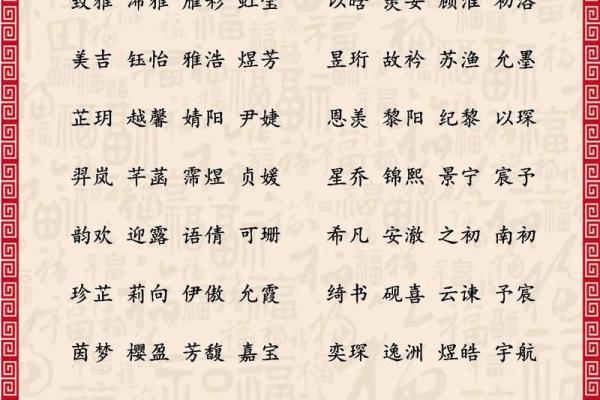 美吉 钰怡 雅浩 煜芳 昱珩 故衿 苏渔 允墨
芷玥 越馨 婧阳 尹婕 恩羡 黎阳 纪黎 以琛
羿岚 芊菡 霈煜 贞媛 星乔 锦熙 景宁 宸予
韵欢 迎露 语倩 可珊 希凡 安澈 之初 南初
珍芷 莉向 伊傲 允霞 绮书 砚喜 云谏 予宸
茵梦 樱盈 芳馥 嘉宝 奕琛 逸洲 煜皓 宇航